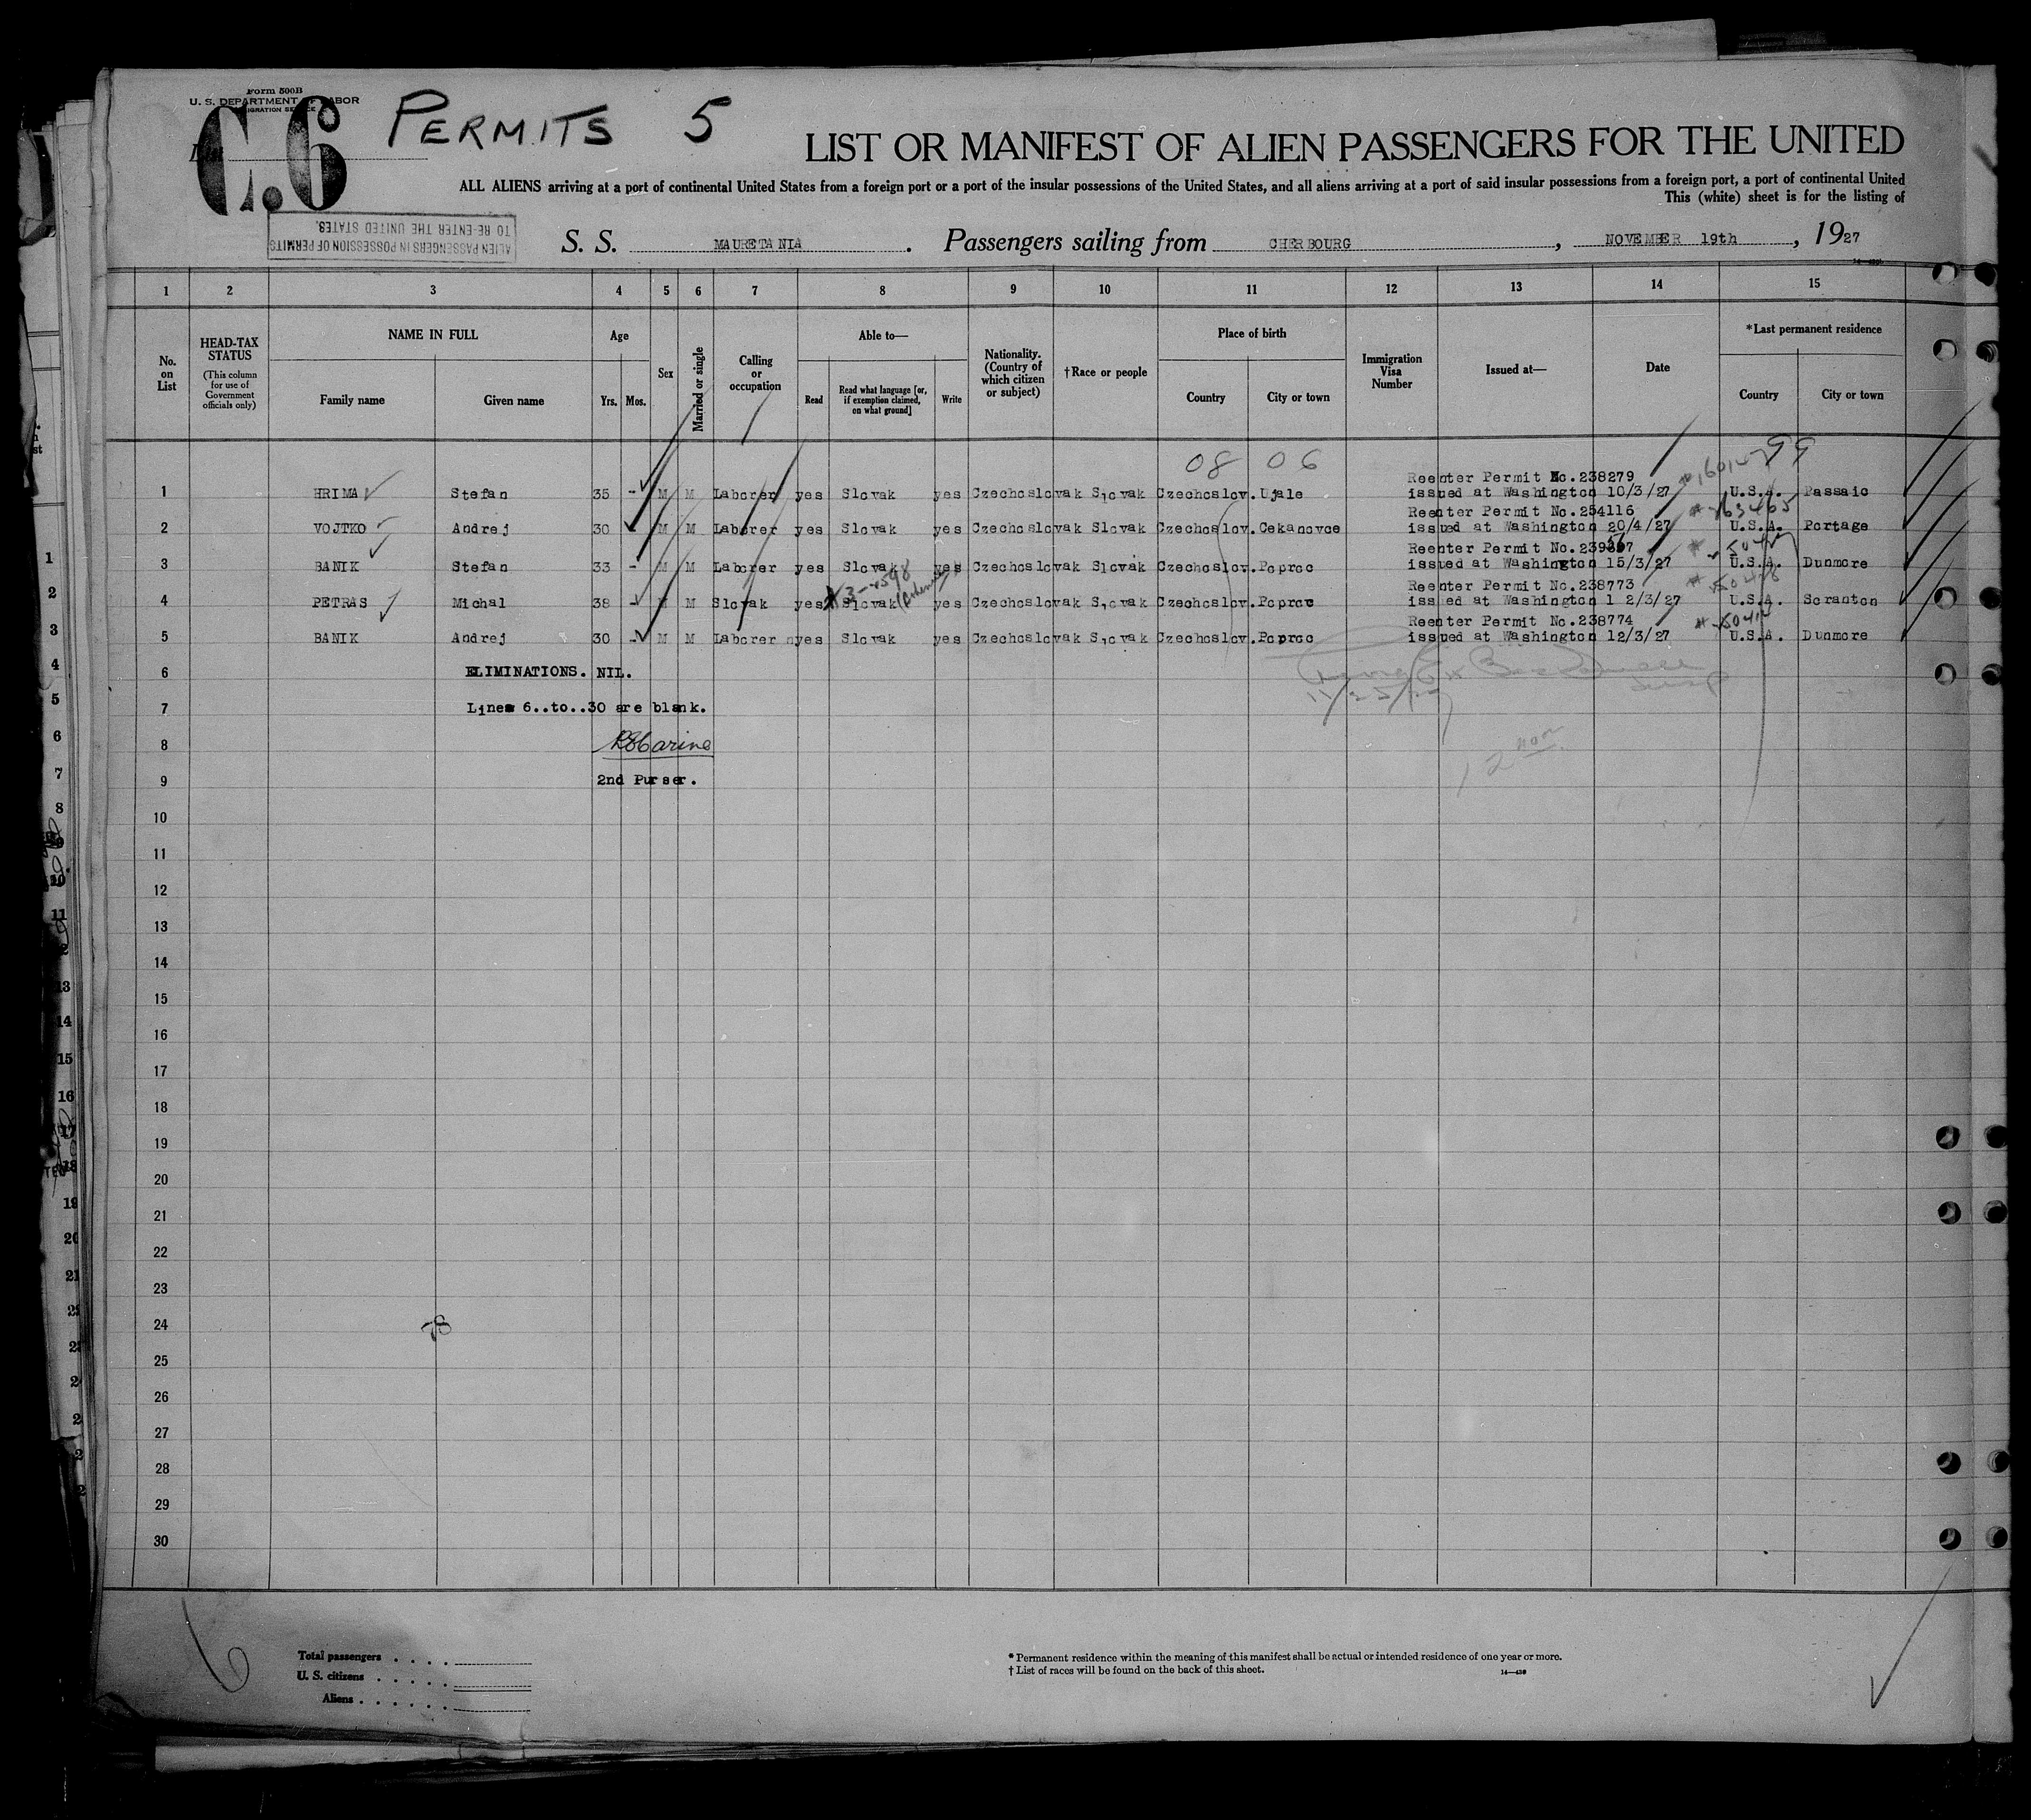 Form 500B
U. S. DEPARTMENT OF LABOR
IMMIGRATION SERVICE
List
C.6
PERMITS 5
LIST OR MANIFEST OF ALIEN PASSENGERS FOR THE UNITED
ALL ALIENS arriving at a port of continental United States from a foreign port or a port of the insular possessions of the United States, and all aliens arriving at a port of said insular possessions from a foreign port, a port of continental United
This (white) sheet is for the listing of
ALIEN PASSENGERS IN POSSESSION OF PERMITS
TO RE-ENTER THE UNITED STATES.
S. S. MAURETANIA. Passengers sailing from CHERBOURG, NOVEMBER 19th, 1927
1 2 3 4 5 6 7 8 9 10 11 12 13 14 15
No. on List
HEAD-TAX STATUS (This column for use of Government officials only)
NAME IN FULL
Family name Given name
Age
Yrs. Mos.
Sex
Married or single
Calling or occupation
Able to—
Read Read what language [or, if exemption claimed, on what ground] Write
Nationality. (Country of which citizen or subject)
†Race or people
Place of birth
Country City or town
Immigration Visa Number
Issued at—
Date
*Last permanent residence
Country City or town
08 06 99
Reenter Permit No.238279
1 HRIMA Stefan 35 - M M Laborer yes Slovak yes Czechoslovak Slovak Czechoslov. Ujale issued at Washington 10/3/27 U.S.A. Passaic
Reenter Permit No.254116
2 VOJTKO Andrej 30 M M Laborer yes Slovak yes Czechoslovak Slovak Czechoslov. Cekanovce issued at Washington 20/4/27 U.S.A. Portage
Reenter Permit No.
3 BANIK Stefan 33 - M M Laborer yes Slovak yes Czechoslovak Slovak Czechoslov. Poproc issued at Washington 15/3/27 U.S.A. Dunmore
Reenter Permit No.238773
4 PETRAS Michal 38 - M M Slovak yes Slovak yes Czechoslovak Slovak Czechoslov. Poproc issued at Washington 1 2/3/27 U.S.A. Scranton
Reenter Permit No.238774
5 BANIK Andrej 30 - M M Laborer yes Slovak yes Czechoslovak Slovak Czechoslov. Poproc issued at Washington 12/3/27 U.S.A. Dunmore
6 ELIMINATIONS. NIL.
7 Lines 6..to..30 are blank.
8
9 2nd Purser.
10
11
12
13
14
15
16
17
18
19
20
21
22
23
24
25
26
27
28
29
30
Total passengers . . . .
U. S. citizens . . . . .
Aliens . . . . . .
* Permanent residence within the meaning of this manifest shall be actual or intended residence of one year or more.
† List of races will be found on the back of this sheet.